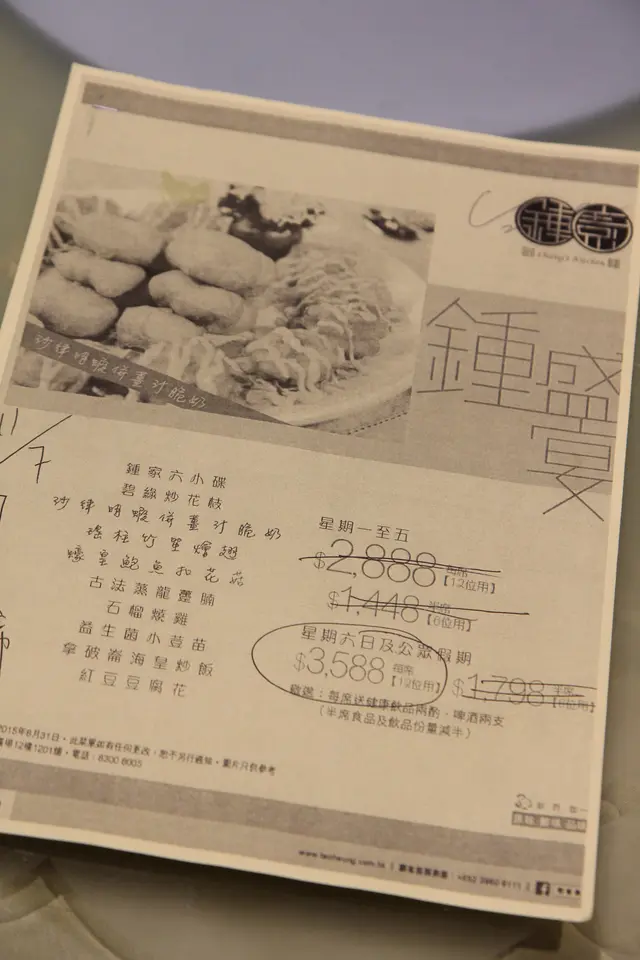 鍾菜
鍾盛宴
沙律明蝦併薑汁脆奶
11/7
鍾家六小碟
碧綠炒花枝
沙律明蝦併薑汁脆奶
瑤柱竹笙燴翅
蠔皇鮑魚扣花菇
古法蒸龍躉腩
石榴燒雞
益生菌小荳苗
拿破崙海皇炒飯
紅豆豆腐花
星期一至五
$2,888 每席【12位用】
$1,448 半席【6位用】
星期六日及公眾假期
$3,588 每席【12位用】
$1,798 半席【6位用】
敬送：每席送健康飲品兩酌，啤酒兩支
（半席食品及飲品份量減半）
2015年8月31日，此菜單如有任何更改，恕不另行通知，圖片只供參考
廣場12樓1201舖，電話：8300 8005
www.taoheung.com.hk